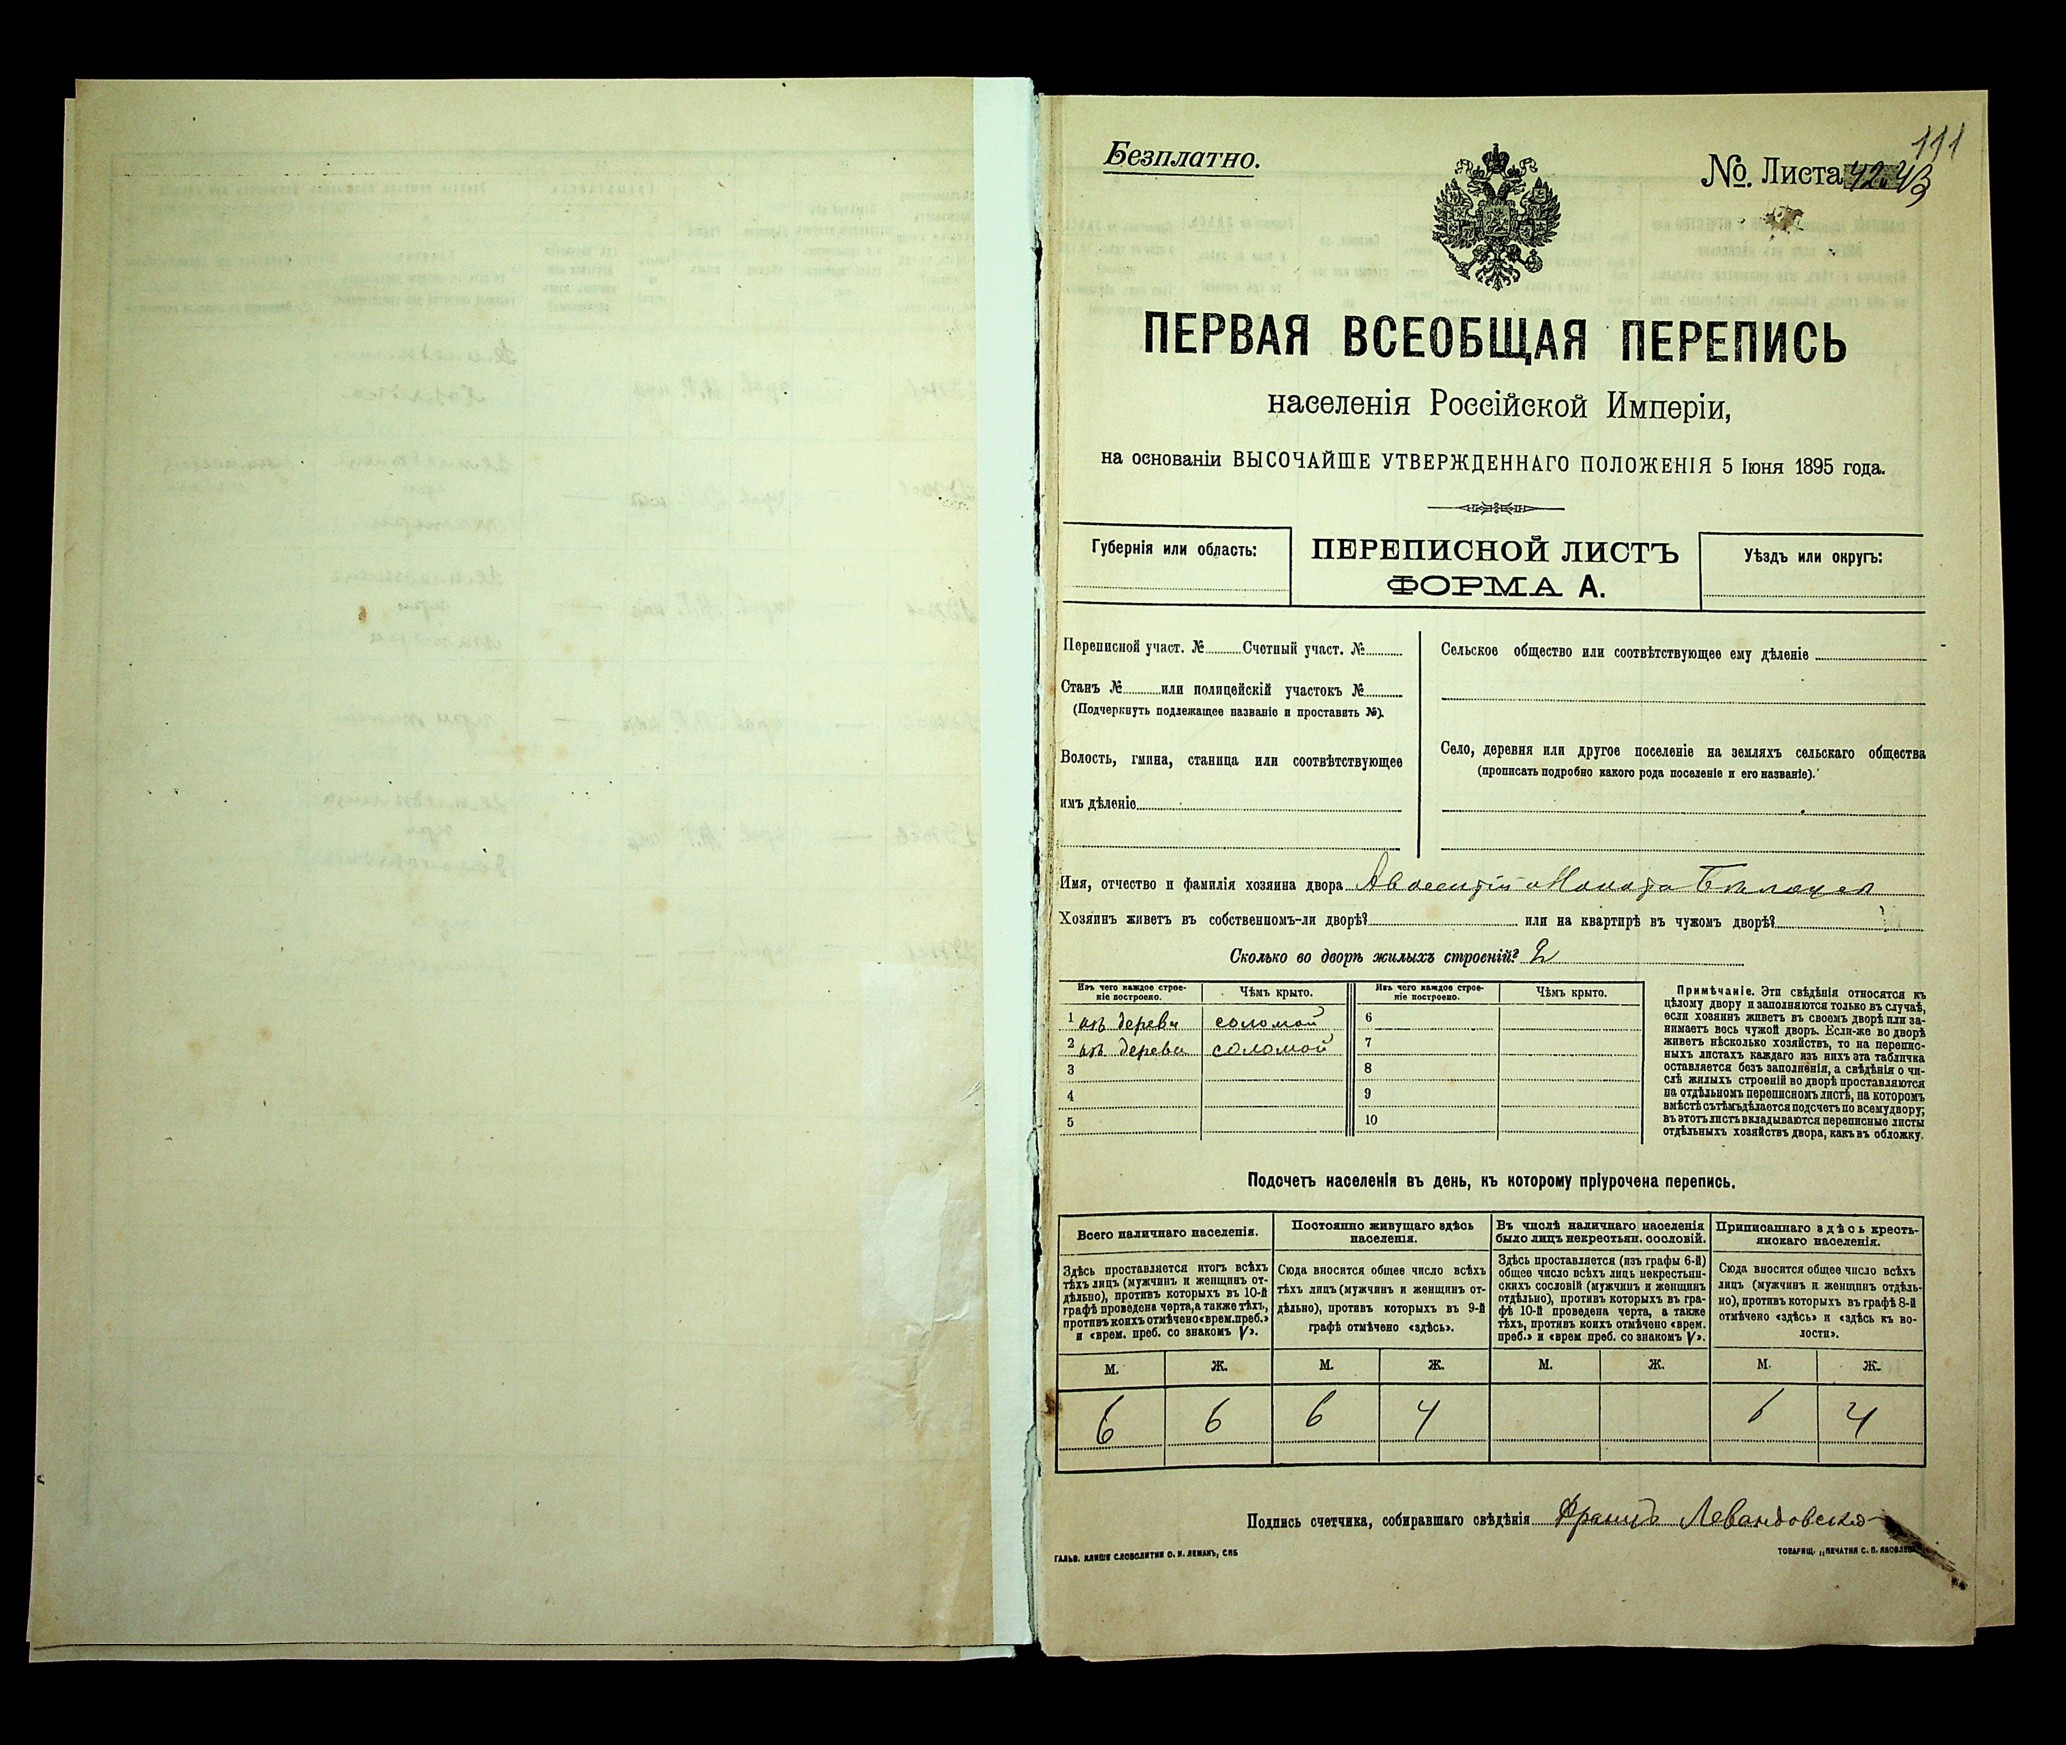 111
Безплатно.
№. Листа 42. 43
ПЕРВАЯ ВСЕОБЩАЯ ПЕРЕПИСЬ
населенія Россійской Имперіи,
на основаніи ВЫСОЧАЙШЕ УТВЕРЖДЕННАГО ПОЛОЖЕНІЯ 5 Іюня 1895 года.
Губернія или область:
ПЕРЕПИСНОЙ ЛИСТЪ
ФОРМА А.
Уѣздъ или округъ:
Переписной участ. № Счетный участ. №
Станъ № или полицейскій участокъ №
(Подчеркнуть подлежащее названіе и проставить №).
Волость, гмина, станица или соотвѣтствующее
имъ дѣленіе
Сельское общество или соотвѣтствующее ему дѣленіе
Село, деревня или другое поселеніе на земляхъ сельскаго общества
(прописать подробно какого рода поселеніе и его названіе).
Имя, отчество и фамилія хозяина двора
Хозяинъ живетъ въ собственномъ-ли дворѣ? или на квартирѣ въ чужомъ дворѣ?
Сколько во дворѣ жилыхъ строеній? 2
Изъ чего каждое строе-
ніе построено.
Чѣмъ крыто.
Изъ чего каждое строе-
ніе построено.
Чѣмъ крыто.
1 изъ дерева соломой 6
2 изъ дерева соломой 7
3 8
4 9
5 10
Примѣчаніе. Эти свѣдѣнія относятся къ
цѣлому двору и заполняются только въ случаѣ,
если хозяинъ живетъ въ своемъ дворѣ или за-
нимаетъ весь чужой дворъ. Если-же во дворѣ
живетъ нѣсколько хозяйствъ, то на перепис-
ныхъ листахъ каждаго изъ нихъ эта табличка
оставляется безъ заполненія, а свѣдѣнія о чи-
слѣ жилыхъ строеній во дворѣ проставляются
на отдѣльномъ переписномъ листѣ, на которомъ
вмѣстѣ съ тѣмъ дѣлается подсчетъ по всему двору;
въ этотъ листъ вкладываются переписные листы
отдѣльныхъ хозяйствъ двора, какъ въ обложку.
Подсчетъ населенія въ день, къ которому пріурочена перепись.
Всего наличнаго населенія.
Здѣсь проставляется итогъ всѣхъ
тѣхъ лицъ (мужчинъ и женщинъ от-
дѣльно), противъ которыхъ въ 10-й
графѣ проведена черта, а также тѣхъ,
противъ коихъ отмѣчено «врем. преб.»
и «врем. преб. со знакомъ V».
Постоянно живущаго здѣсь
населенія.
Сюда вносится общее число всѣхъ
тѣхъ лицъ (мужчинъ и женщинъ от-
дѣльно), противъ которыхъ въ 9-й
графѣ отмѣчено «здѣсь».
Въ числѣ наличнаго населенія
было лицъ некрестьян. сословій.
Здѣсь проставляется (изъ графы 6-й)
общее число всѣхъ лицъ некрестьян-
скихъ сословій (мужчинъ и женщинъ
отдѣльно), противъ которыхъ въ гра-
фѣ 10-й проведена черта, а также
тѣхъ, противъ коихъ отмѣчено «врем.
преб.» и «врем преб. со знакомъ V».
Приписаннаго здѣсь кресть-
янскаго населенія.
Сюда вносится общее число всѣхъ
лицъ (мужчинъ и женщинъ отдѣль-
но), противъ которыхъ въ графѣ 8-й
отмѣчено «здѣсь» и «здѣсь къ во-
лости».
М. Ж. М. Ж. М. Ж. М. Ж.
6 6 6 4 6 4
Подпись счетчика, собиравшаго свѣдѣнія Францъ Левандовскій
ГАЛЬВ. КЛИШЕ СЛОВОЛИТНИ О. И. ЛЕМАНЪ, СПБ
ТОВАРИЩ. „ПЕЧАТНЯ С. П. ЯКОВЛЕВА